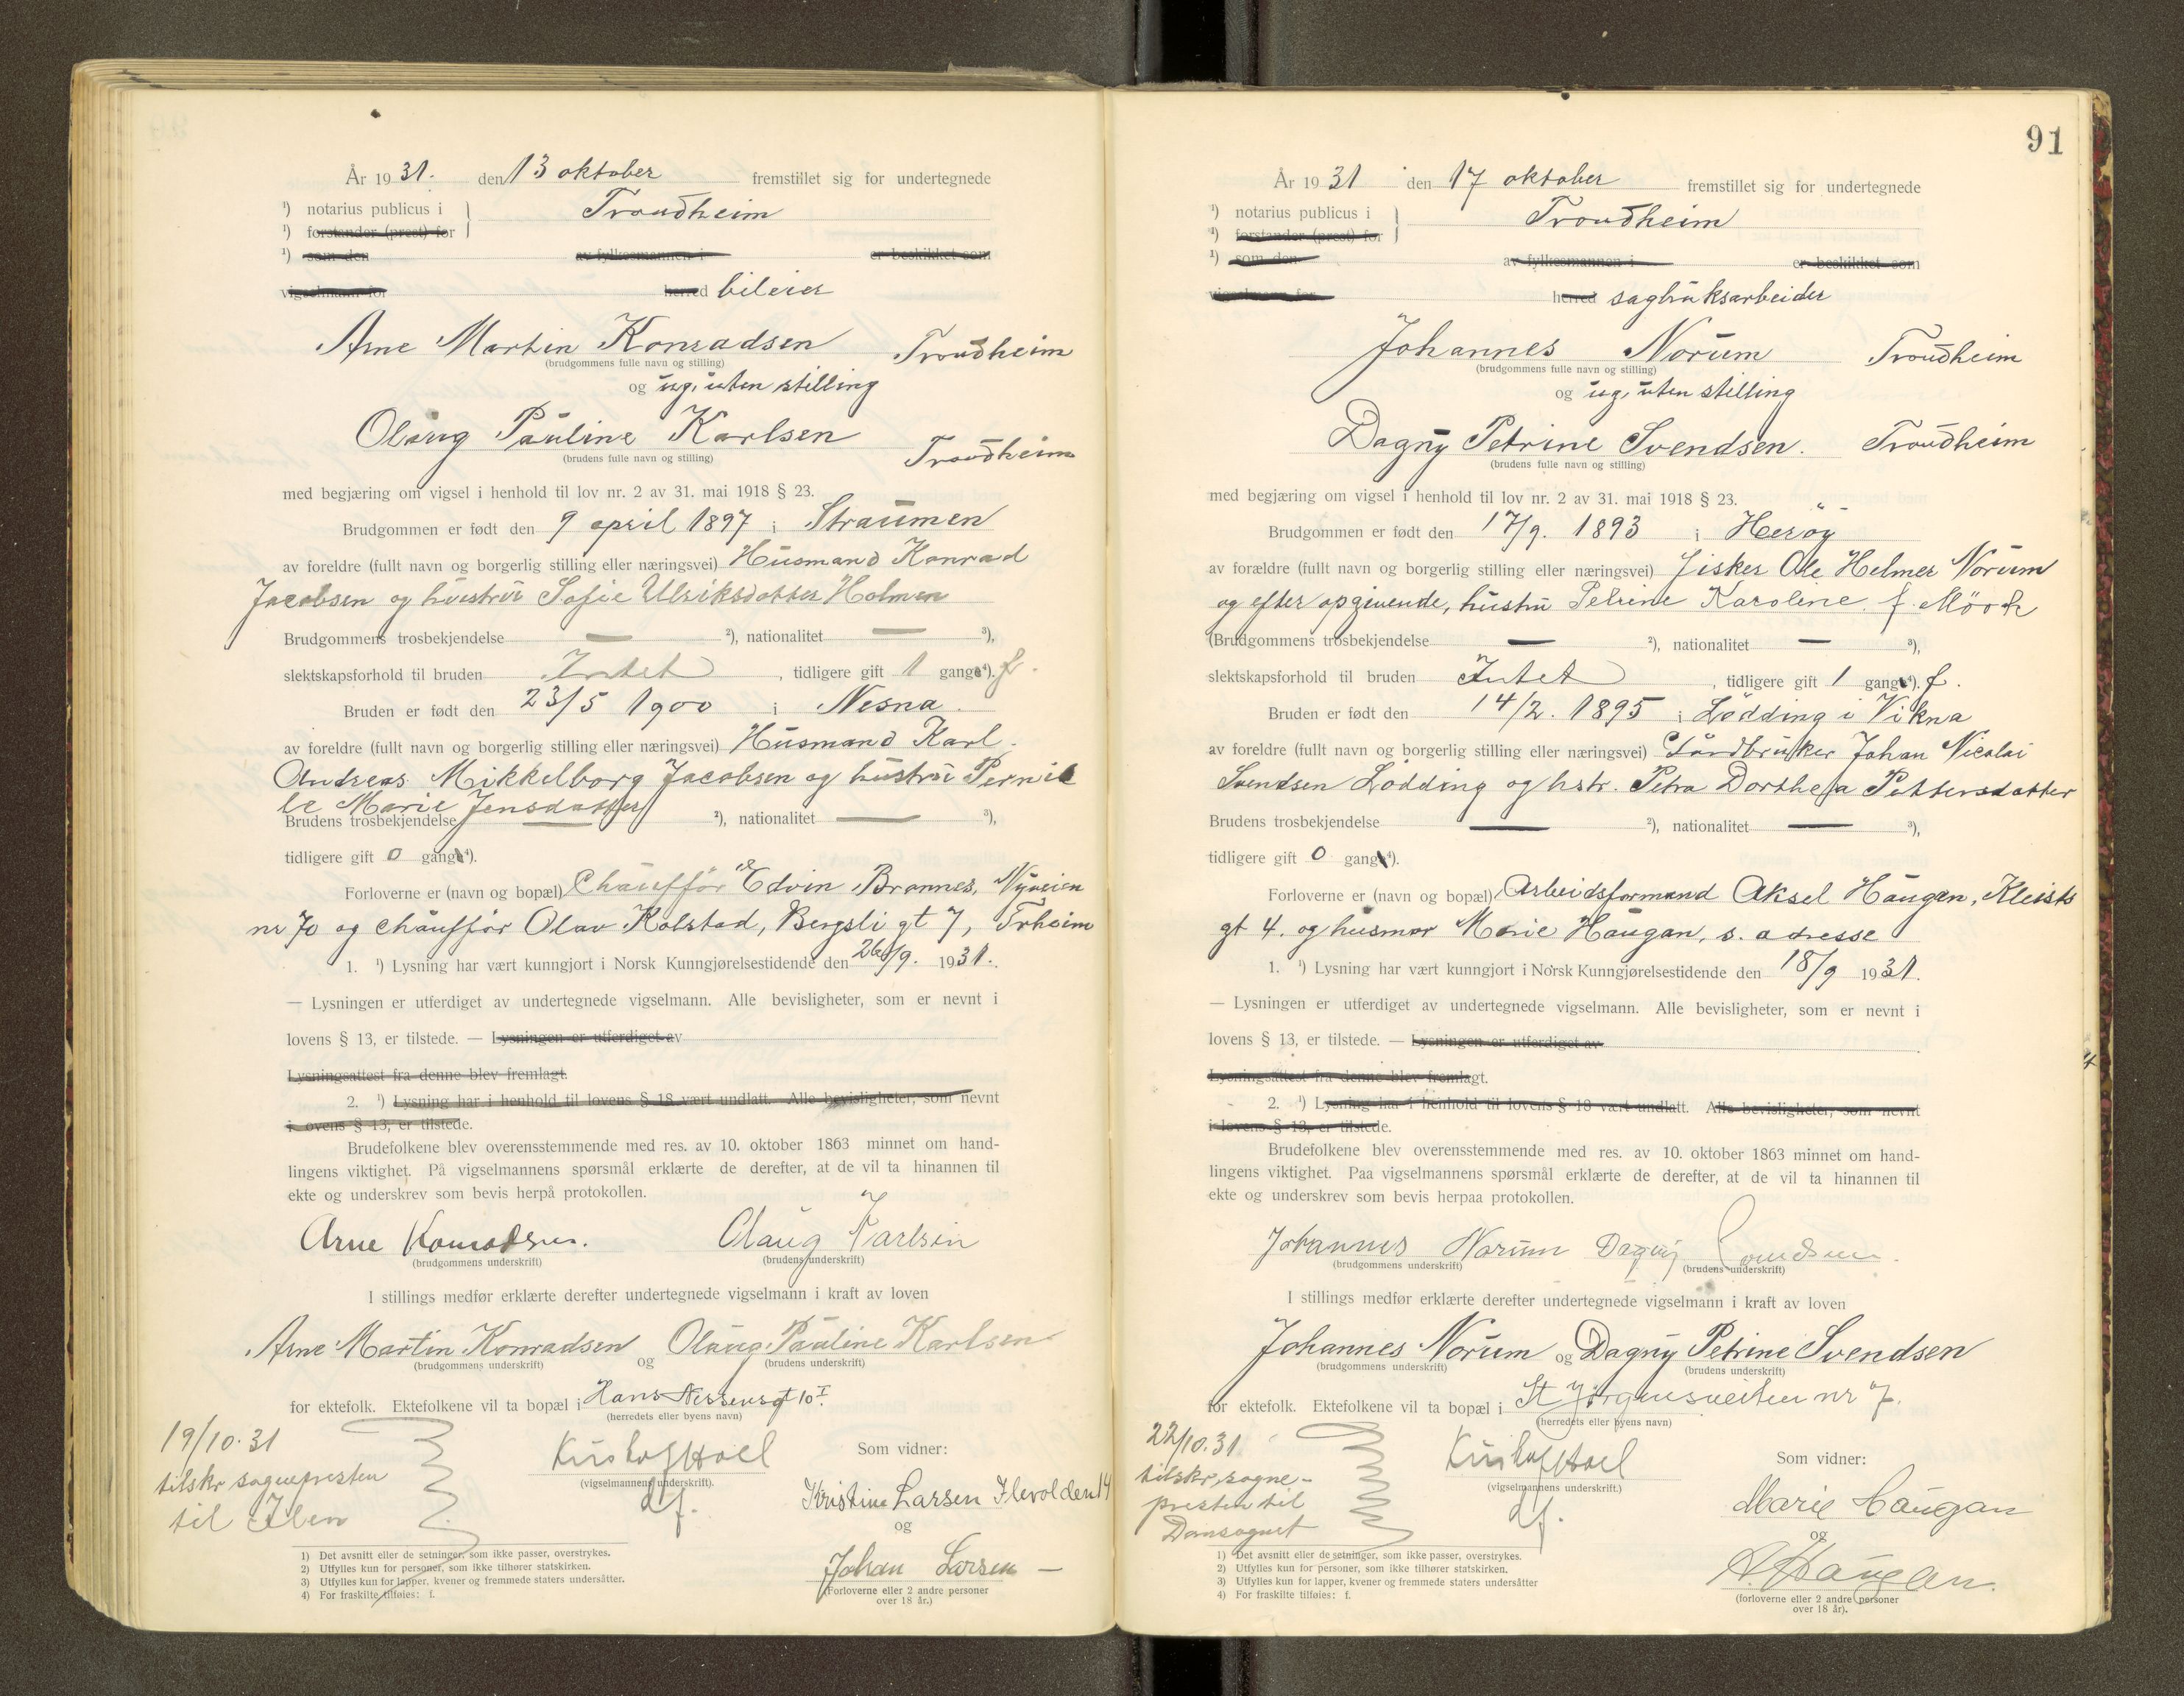 År 1931. den 13 oktober fremstillet sig for undertegnede
¹) notarius publicus i } Trondheim
¹) forstander (prest) for
¹) som den av fylkesmannen i er beskikket som
vigselmann for herred bileier
Arne Martin Konradsen Trondheim
(brudgommens fulle navn og stilling)
og ug. uten stilling
Olaug Pauline Karlsen Trondheim
(brudens fulle navn og stilling)
med begjæring om vigsel i henhold til lov nr. 2 av 31. mai 1918 § 23.
Brudgommen er født den 9 april 1897 i Straumen
av foreldre (fullt navn og borgerlig stilling eller næringsvei) Husmand Konrad
Jacobsen og hustru Sofie Ulriksdatter Holmen
Brudgommens trosbekjendelse — ²), nationalitet — ³),
slektskapsforhold til bruden Intet, tidligere gift 1 gange⁴). f.
Bruden er født den 23/5 1900 i Nesna.
av foreldre (fullt navn og borgerlig stilling eller næringsvei) Husmand Karl
Andreas Mikkelborg Jacobsen og hustru Pernil
le Marie Jensdatter
Brudens trosbekjendelse — ²), nationalitet — ³),
tidligere gift 0 gange⁴).
Forloverne er (navn og bopæl) Chauffør Edvin Brannes, Nyveien
nr 70 og chauffør Olav Kolstad, Bergsli gt 7, Trheim
1. ¹) Lysning har vært kunngjort i Norsk Kunngjørelsestidende den 26/9. 1931.
— Lysningen er utferdiget av undertegnede vigselmann. Alle bevisligheter, som er nevnt i
lovens § 13, er tilstede. — Lysningen er utferdiget av
Lysningsattest fra denne blev fremlagt.
2. ¹) Lysning har i henhold til lovens § 18 vært undlatt. Alle bevisligheter, som nevnt
i lovens § 13, er tilstede.
Brudefolkene blev overensstemmende med res. av 10. oktober 1863 minnet om hand-
lingens viktighet. På vigselmannens spørsmål erklærte de derefter, at de vil ta hinannen til
ekte og underskrev som bevis herpå protokollen.
Arne Konradsen. Olaug Karlsen
(brudgommens underskrift) (brudens underskrift)
I stillings medfør erklærte derefter undertegnede vigselmann i kraft av loven
Arne Martin Konradsen og Olaug Pauline Karlsen
(brudgommens underskrift) (brudens underskrift)
for ektefolk. Ektefolkene vil ta bopæl i Hans Nissensgt 10 I
(herredets eller byens navn)
19/10.31
tilskr sognepresten
til Ilen
(vigselmannens underskrift).
df.
Som vidner:
Kristine Larsen Ilevolden 14
og
Johan Larsen —
(Forloverne eller 2 andre personer
over 18 år.)
1) Det avsnitt eller de setninger, som ikke passer, overstrykes.
2) Utfylles kun for personer, som ikke tilhører statskirken.
3) Utfylles kun for lapper, kvener og fremmede staters undersåtter.
4) For fraskilte tilføies: f.
91
År 1931 den 17 oktober fremstillet sig for undertegnede
¹) notarius publicus i } Trondheim
¹) forstander (prest) for
¹) som den av fylkesmannen i er beskikket som
vigselmann for herred sagbruksarbeider
Johannes Norum Trondheim
(brudgommens fulle navn og stilling)
og ug. uten stilling
Dagny Petrine Svendsen. Trondheim
(brudens fulle navn og stilling)
med begjæring om vigsel i henhold til lov nr. 2 av 31. mai 1918 § 23.
Brudgommen er født den 17/9. 1893 i Herøy
av forældre (fullt navn og borgerlig stilling eller næringsvei) fisker Ole Helmer Norum
og efter opgivende, hustru Petrine Karoline f. Möörk
(Brudgommens trosbekjendelse — ²), nationalitet — ³),
slektskapsforhold til bruden Intet, tidligere gift 1 gang⁴). f.
Bruden er født den 14/2. 1895 i Lødding i Vikna
av foreldre (fullt navn og borgerlig stilling eller næringsvei) Gårdbruker Johan Nicolai
Svendsen Lødding og hstr. Petra Dorthea Pettersdatter
Brudens trosbekjendelse — ²), nationalitet — ³),
tidligere gift 0 gange⁴).
Forloverne er (navn og bopæl) Arbeidsformand Aksel Haugan, Kleists
gt 4. og husmor Marie Haugan, s. adresse
1. ¹) Lysning har vært kunngjort i Norsk Kunngjørelsestidende den 18/9 1931.
— Lysningen er utferdiget av undertegnede vigselmann. Alle bevisligheter, som er nevnt i
lovens § 13, er tilstede. — Lysningen er utferdiget av
Lysningsattest fra denne blev fremlagt.
2. ¹) Lysning har i henhold til lovens § 18 vært undlatt. Alle bevisligheter, som nevnt
i lovens § 13, er tilstede.
Brudefolkene blev overensstemmende med res. av 10. oktober 1863 minnet om hand-
lingens viktighet. Paa vigselmannens spørsmål erklærte de derefter, at de vil ta hinannen til
ekte og underskrev som bevis herpaa protokollen.
Johannes Norum Dagny Svendsen.
(brudgommens underskrift) (brudens underskrift)
I stillings medfør erklærte derefter undertegnede vigselmann i kraft av loven
Johannes Norum og Dagny Petrine Svendsen
(brudgommens underskrift) (brudens underskrift)
for ektefolk. Ektefolkene vil ta bopæl i St Jørgensveiten nr 7.
(herredets eller byens navn)
22/10.31
tilskr. sogne-
presten til
Domsognet
(vigselmannens underskrift.)
df.
Som vidner:
Marie Haugan
og
A. Haugan.
(forloverne eller 2 andre personer
over 18 år).
1) Det avsnitt eller de setninger, som ikke passer, overstrykes.
2) Utfylles kun for personer, som ikke tilhører statskirken.
3) Utfylles kun for lapper, kvener og fremmede staters undersåtter
4) For fraskilte tilføies: f.